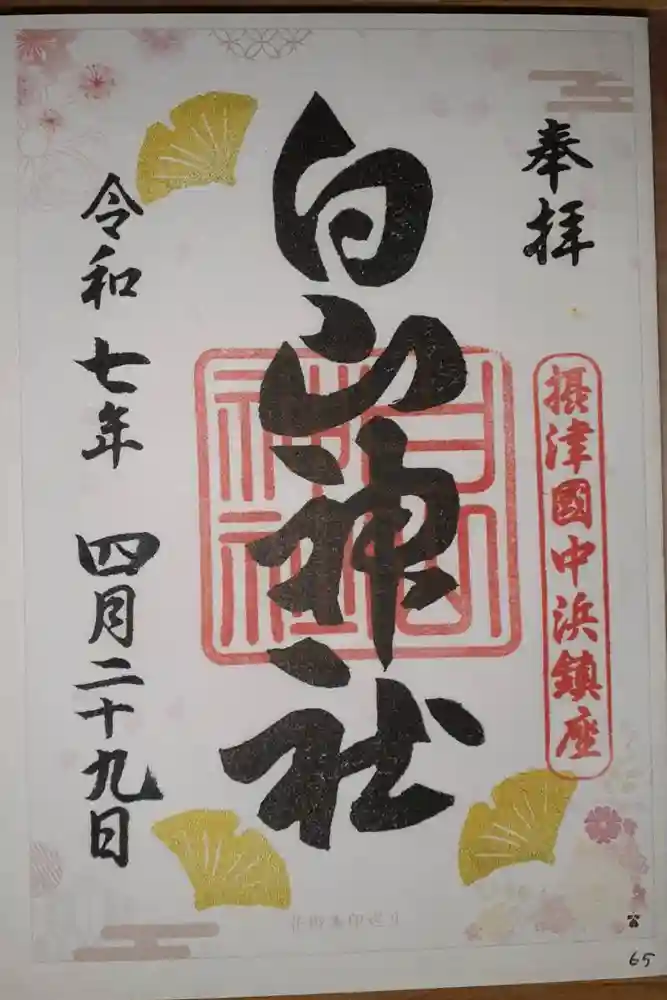 奉拝
摂津國中浜鎮座
白山神社
白山神社
令和七年四月二十九日
65